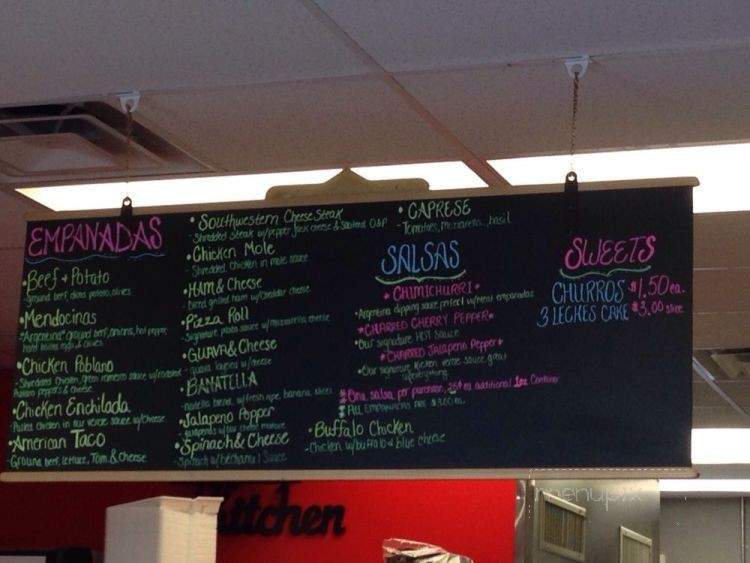 EMPANADAS
• Beef + Potato
-Ground beef, onions, potato, olives
• Mendocinas
"Argentina" ground beef, onions, hot pepper,
hard boiled eggs & olives
• Chicken Poblano
-Shredded Chicken, green romesco sauce w/roasted
Poblano peppers & cheese
• Chicken Enchilada
-Pulled chicken in our verde sauce w/cheese
• American Taco
-Ground beef, lettuce, Tom. & cheese
• Southwestern Cheese Steak
-Shredded steak w/pepper jack cheese & Sauteed O&P
• Chicken Mole
-Shredded Chicken in mole sauce
• HAM & Cheese
-Diced grilled ham w/cheddar cheese
• Pizza Roll
-Signature pizza sauce w/mozzarella cheese
• GUAVA & Cheese
-guava w/cheese
• BANATELLA
-nutella blend w/fresh ripe banana slices
• Jalapeno Popper
-Jalapenos w/our cheese mixture
• Spinach & Cheese
-Spinach w/bechamel Sauce
• CAPRESE
-Tomatoes, Mozzarella, basil
SALSAS
* CHIMICHURRI *
• Argentina dipping sauce, perfect w/meat empanadas
*CHARRED CHERRY PEPPER*
• Our signature HOT sauce
*CHARRED Jalapeno Pepper*
• Our signature kitchen verde sauce, great
w/everything
* One salsa per purchase, 25¢ ea. additional 1oz Container
* All EMPANADAS ARE $3.00 ea.
• Buffalo Chicken
-Chicken w/buffalo & blue cheese
SWEETS
CHURROS $1.50 ea.
3 LECHES CAKE $3.00 slice
kitchen
menupix